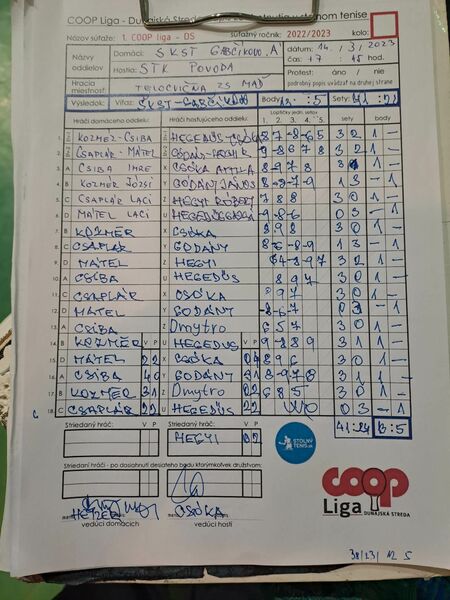 COOP Liga - Dunajská Streda
stolnom tenise
Názov súťaže: 1. COOP liga - DS
súťažný ročník: 2022/2023
kolo:
Názvy oddielov
Domáci: ŠKST GABČÍKOVO A
Hostia: STK POVODA
dátum: 14. / 3 / 2023
čas: 17 : 45 hod.
Hracia miestnosť: TELOCVIČŇA ZŠ MAD
Protest: áno / nie
podrobný popis uvádzať na druhej strane
Výsledok: Víťaz: ŠKST GABČÍKOVO
Body 13 : 5
Sety:
Hráči domáceho oddielu:
Hráči hosťujúceho oddielu:
Loptičky jedn. setov
1. 2. 3. 4. 5.
sety
body
1. KOZMÉR-CSIBA HEGEDŰS-CSÓKA 8 7 -8 -6 5 3 2 1 -
2. CSAPLÁR-MÁTEL 3 2 1 -
3. A CSIBA IMRE X CSÓKA ATTILA 1 -
4. B KOZMER JÓZSI Y GODÁNY JÁNOS 8 -3 -7 -9 1 3 - 1
5. C CSAPLÁR LACI Z HEGYI RÓBERT 7 8 8 3 0 1 -
6. D MÁTEL LACI U -9 -8 -6 0 3 - 1
7. B KOZMÉR X CSÓKA 8 9 8 3 0 1 -
8. C CSAPLÁR Y GODÁNY 8 -6 -8 -9 1 3 - 1
9. D MÁTEL Z HEGYI 3 2 1 -
10. A CSIBA U HEGEDŰS 8 9 7 3 0 1 -
11. C CSAPLÁR X CSÓKA 9 7 3 0 1 -
12. D MÁTEL Y GODÁNY -8 -6 -7 0 3 - 1
13. A CSIBA Z Dmytro 6 5 7 3 0 1 -
14. B KOZMÉR V P U HEGEDŰS V P 9 -8 8 9 3 1 1 -
15. D MÁTEL 2 2 X CSÓKA 0 4 8 9 6 3 0 1 -
16. A CSIBA 4 0 Y GODÁNY 8 -9 7 8 3 1 1 -
17. B KOZMÉR 3 1 Z Dmytro 6 8 5 3 0 1 -
18. C CSAPLÁR 2 2 U HEGEDŰS 2 2 W/O 0 3 - 1
Striedaný hráč V P
Striedaný hráč V P
41:24 13:5
HEGYI 0 2
STOLNÝ TENIS.sk
Striedaní hráči - po dosiahnutí desiateho bodu ktorýmkoľvek družstvom:
CSÓKA
vedúci domácich
vedúci hostí
coop
Liga DUNAJSKÁ STREDA